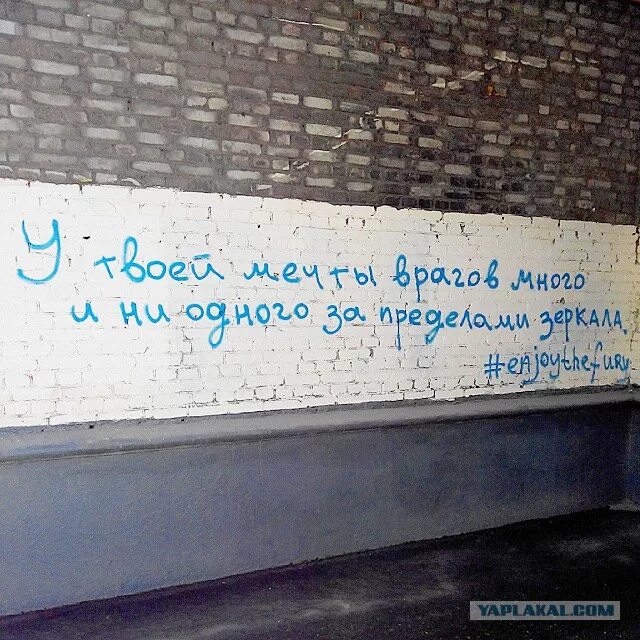 У твоей мечты врагов много
и ни одного за пределами зеркала.
#enjoythefury
YAPLAKAL.COM